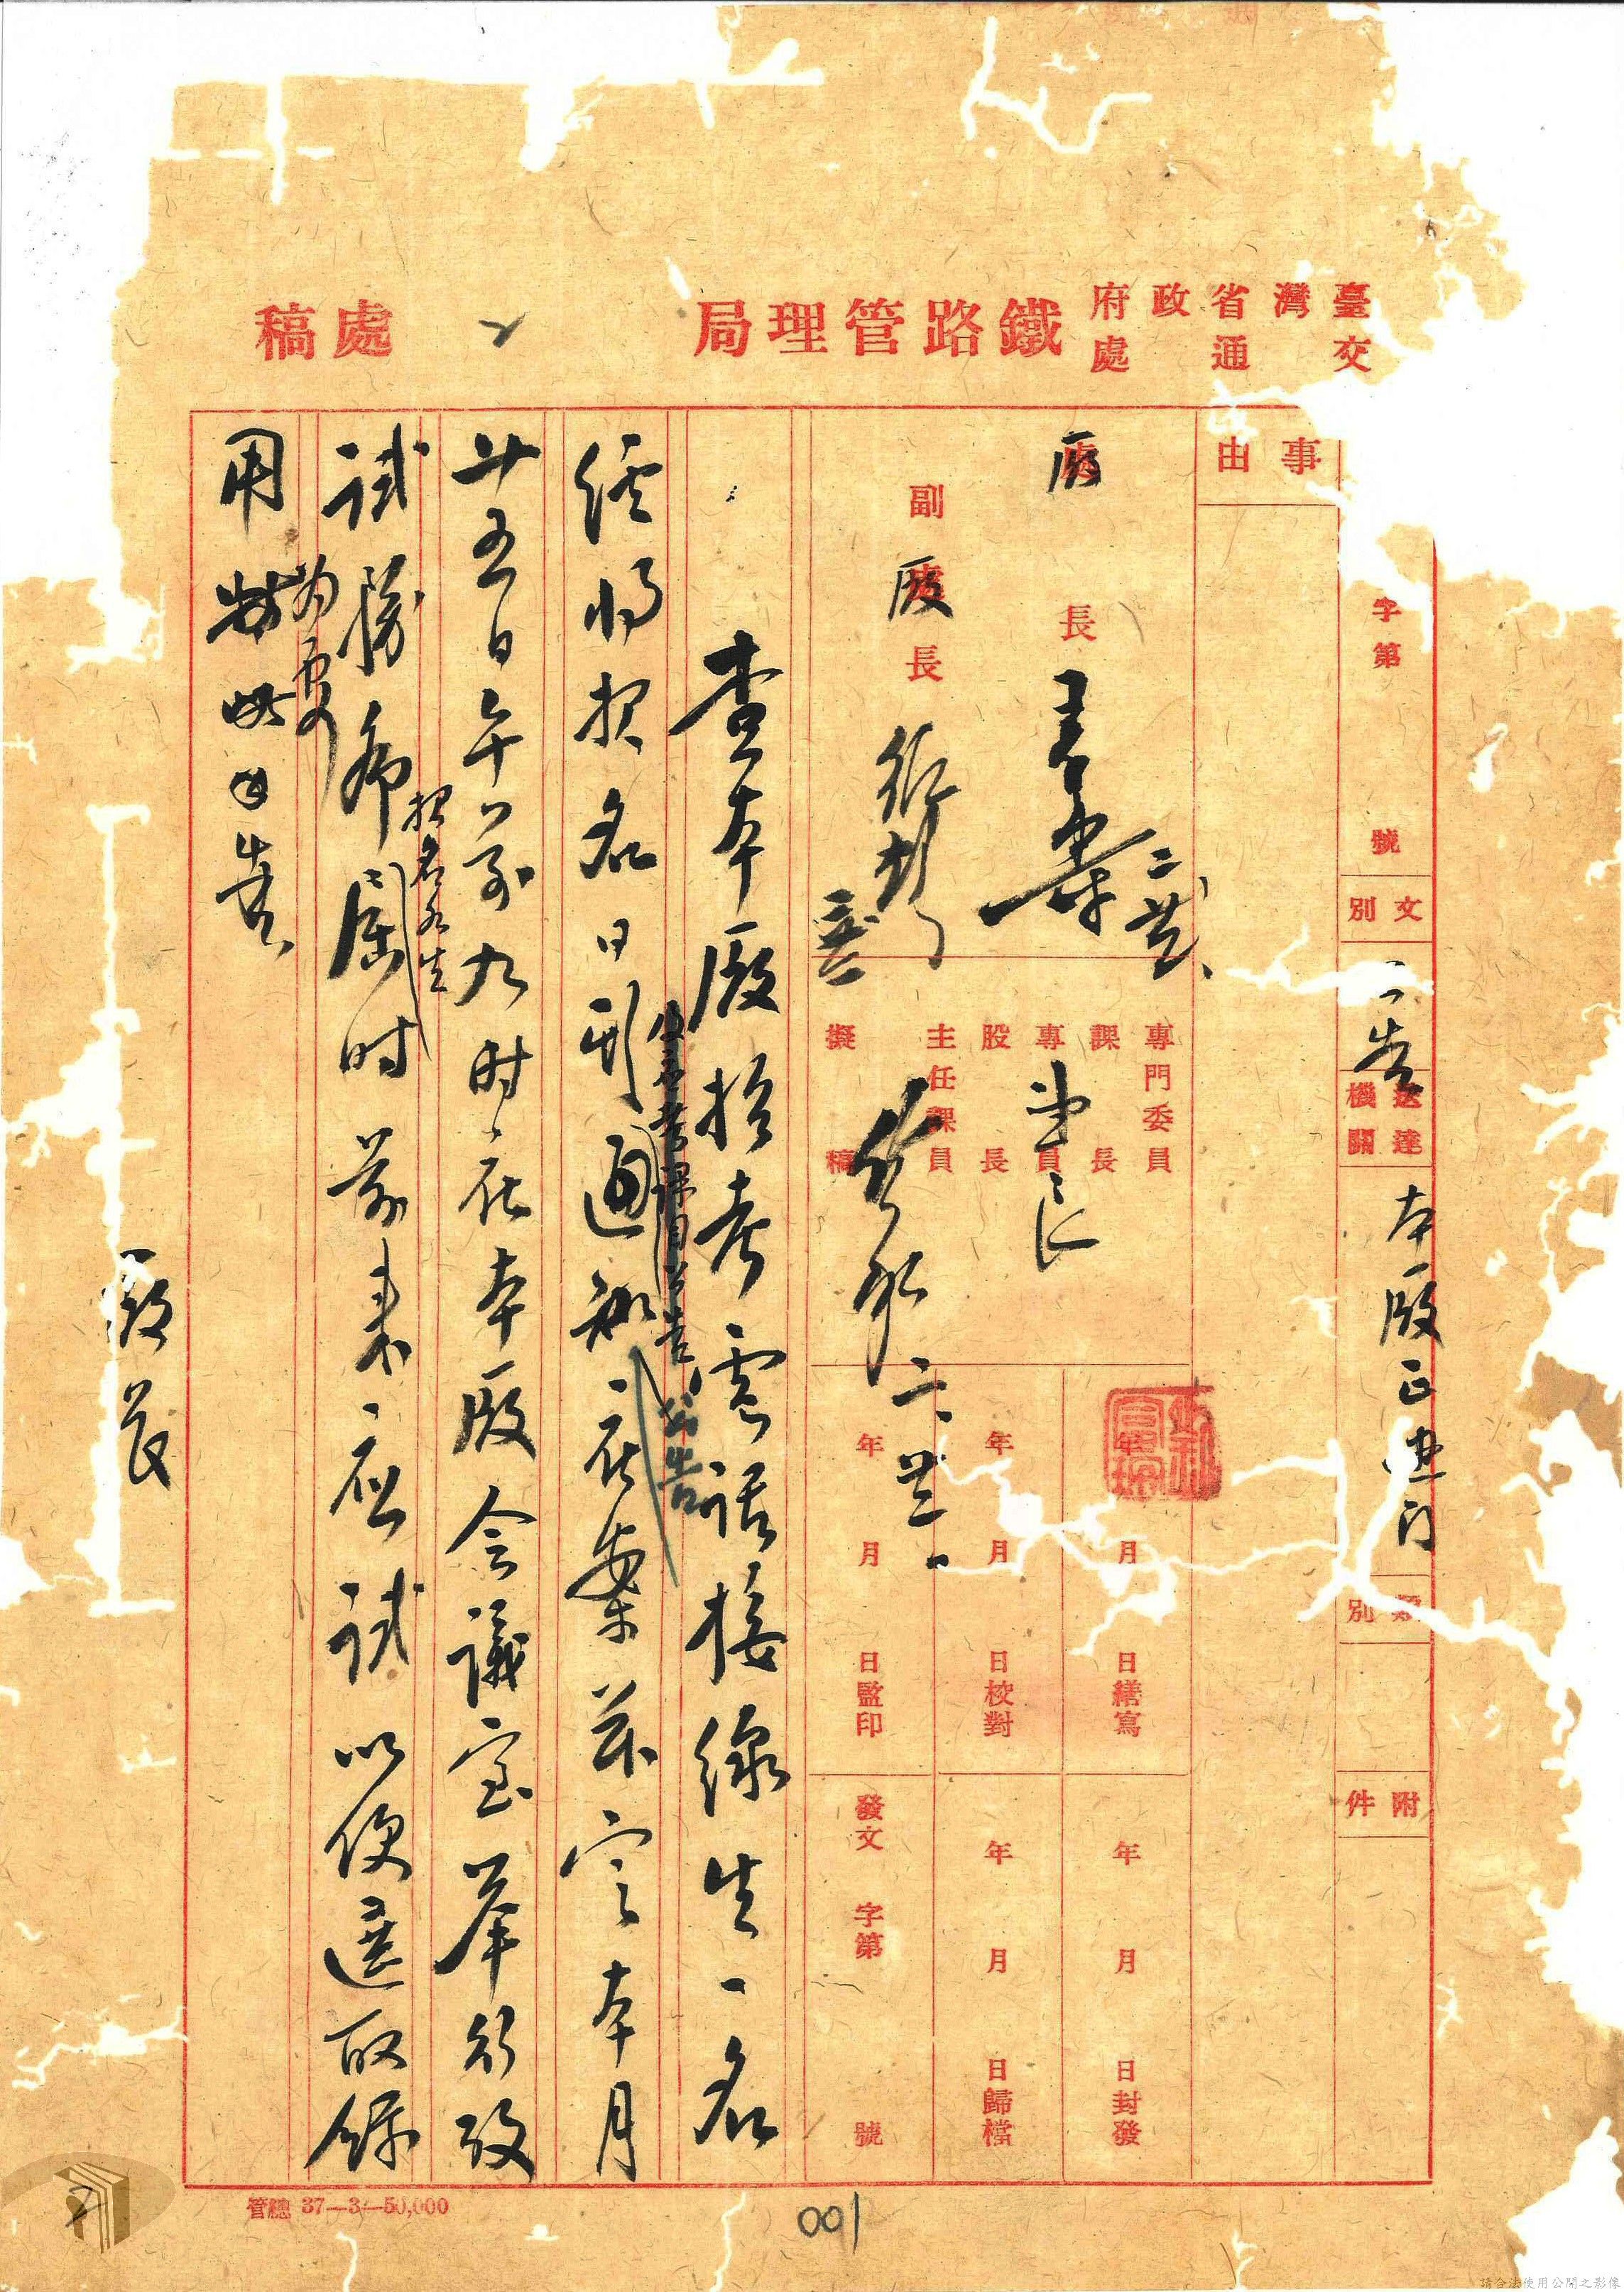 臺灣省政府
交通處
鐵路管理局
處稿
字第 號
文別
公告
送達機關
本廠正進門
類別
附件
事由
廠長
二 廿
副廠長
專門委員
課長
專員
股長
主任課員
擬稿
二、廿二、
年 月 日繕寫
年 月 日校對
年 月 日監印
年 月 日封發
年 月 日歸檔
發文 字第 號
查本廠招考電話接線生一名
經將報名日期通知在案茲定本月
公告
廿五日午前九時在本廠會議室舉行考
試務希屆時前來應試以便選取錄
報名各生
為要
用特此公告
廠長
管總 37—3—50,000
001
請合法使用公開之影像